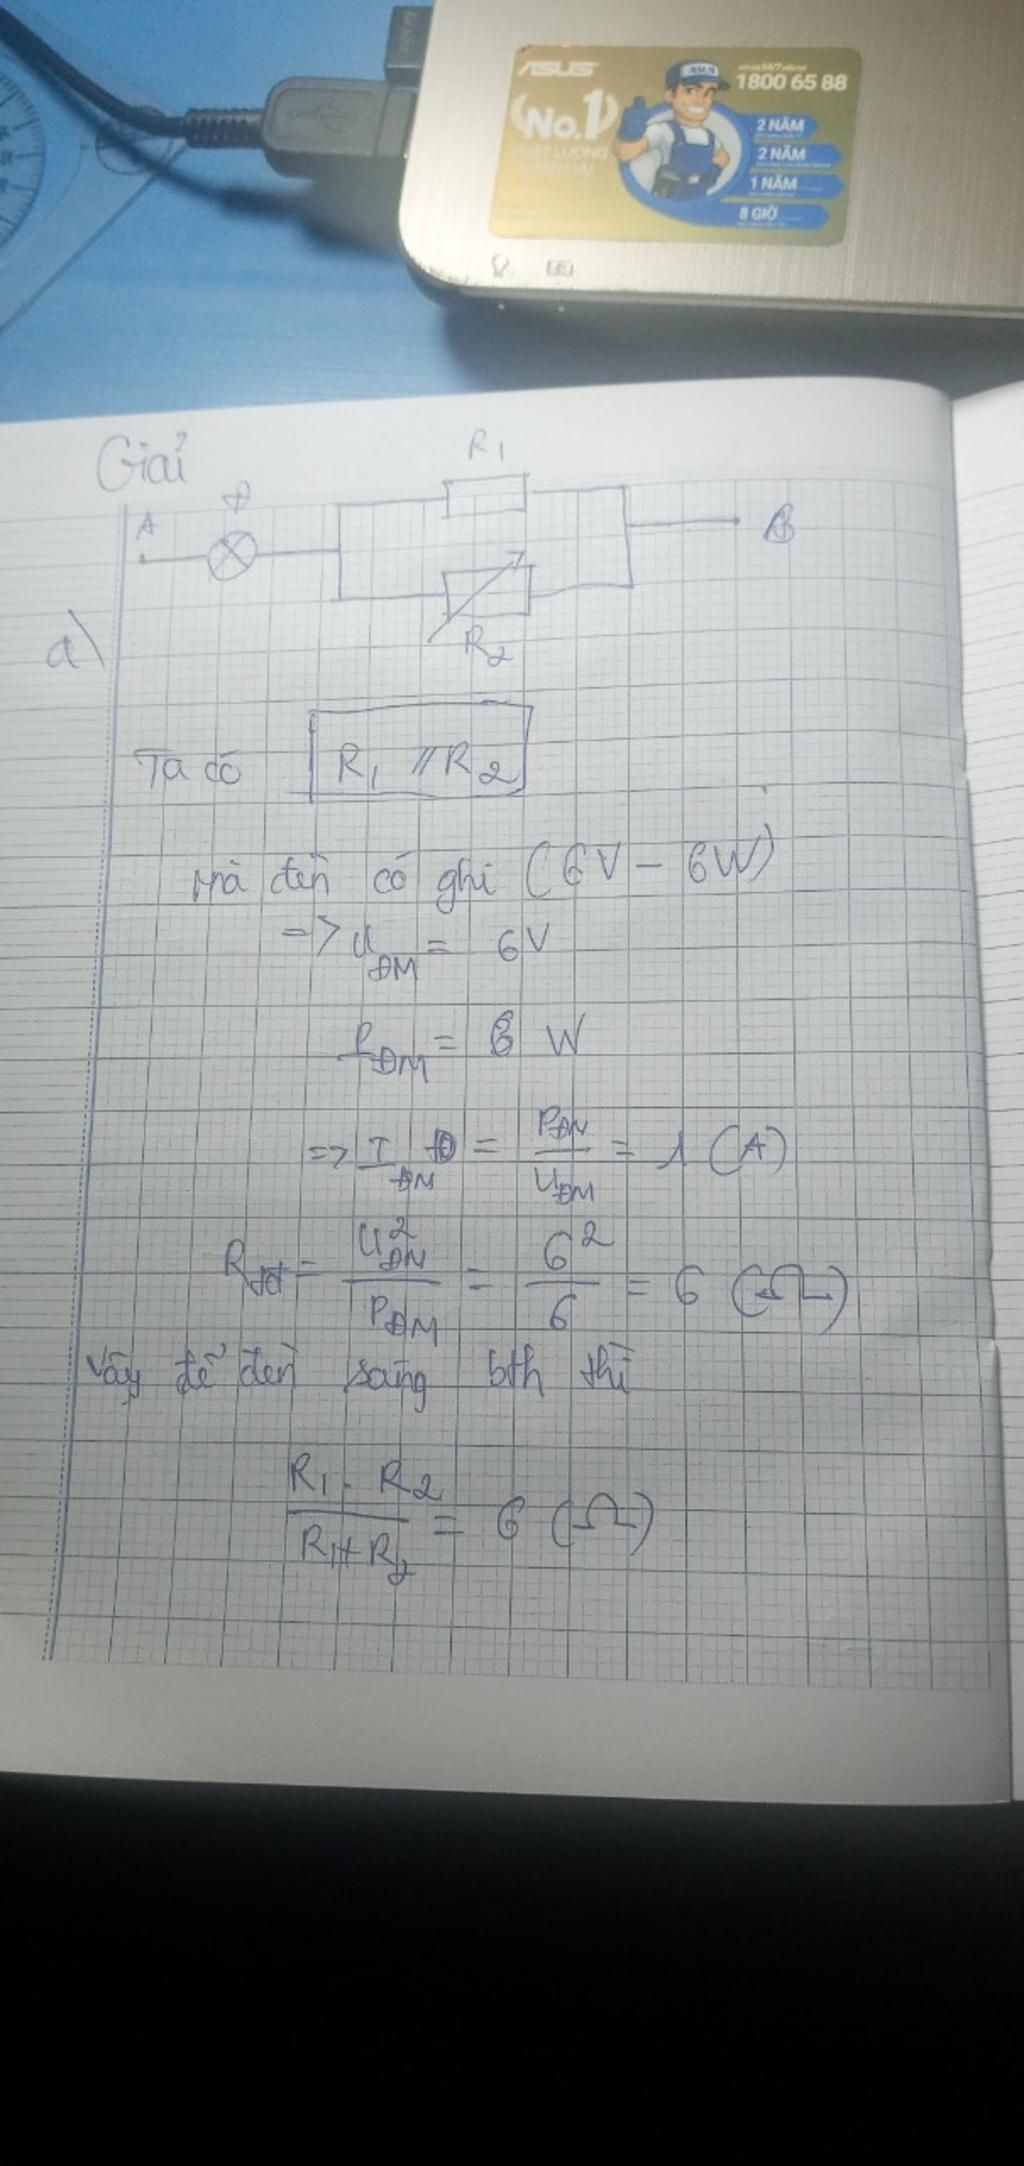 ASUS
1800 65 88
No.1
2 NĂM
2 NĂM
1 NĂM
8 GIỜ
Giải
R1
A
Đ
B
R2
a)
Ta có R1 // R2
mà đèn có ghi (6V - 6W)
=> UĐM = 6V
PĐM = 6 W
=> IĐM = PĐM / UĐM = 1 (A)
Rđ = U²ĐM / PĐM = 6² / 6 = 6 (Ω)
Vậy để đèn sáng bth thì
R1 . R2 / R1 + R2 = 6 (Ω)